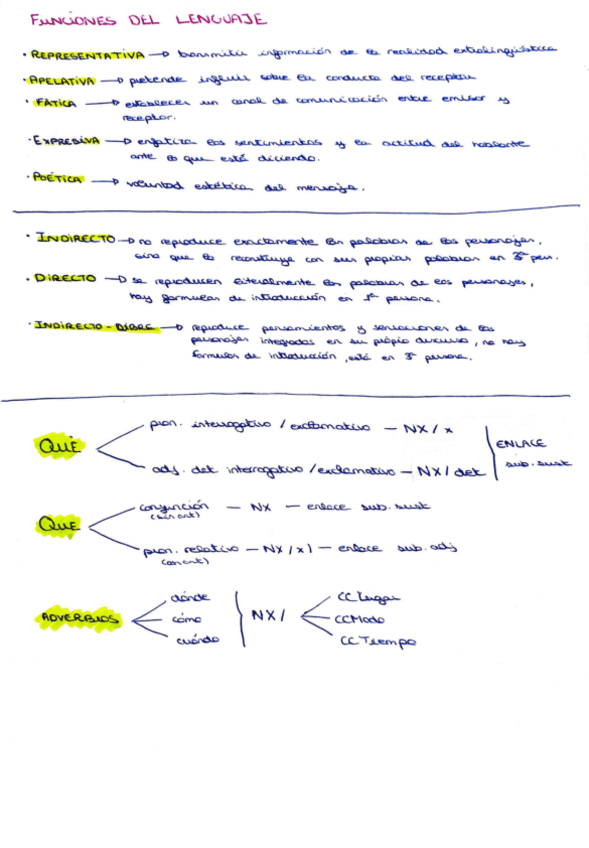 FUNCIONES DEL LENGUAJE
· REPRESENTATIVA → transmitir información de la realidad extralingüística
· APELATIVA → pretende influir sobre la conducta del receptor
· FÁTICA → establecer un canal de comunicación entre emisor y
receptor.
· EXPRESIVA → enfatiza los sentimientos y la actitud del hablante
ante lo que está diciendo.
· POÉTICA → voluntad estética del mensaje.
· INDIRECTO → no reproduce exactamente las palabras de los personajes,
sino que lo reconstruye con sus propias palabras en 3ª pers.
· DIRECTO → se reproducen literalmente las palabras de los personajes,
hay formulas de introducción en 1ª persona.
· INDIRECTO-LIBRE → reproduce pensamientos y sensaciones de los
personajes integrados en su propio discurso, no hay
formulas de introducción, está en 3ª persona.
QUÉ
pron. interrogativo / exclamativo — NX / x
adj. det interrogativo / exclamativo — NX / det
ENLACE
sub. sust
QUE
conjunción — NX — enlace sub. sust
(sin ant)
pron. relativo — NX / x) — enlace sub. adj
(con ant)
ADVERBIOS
dónde
cómo
cuándo
NX /
CC Lugar
CC Modo
CC Tiempo